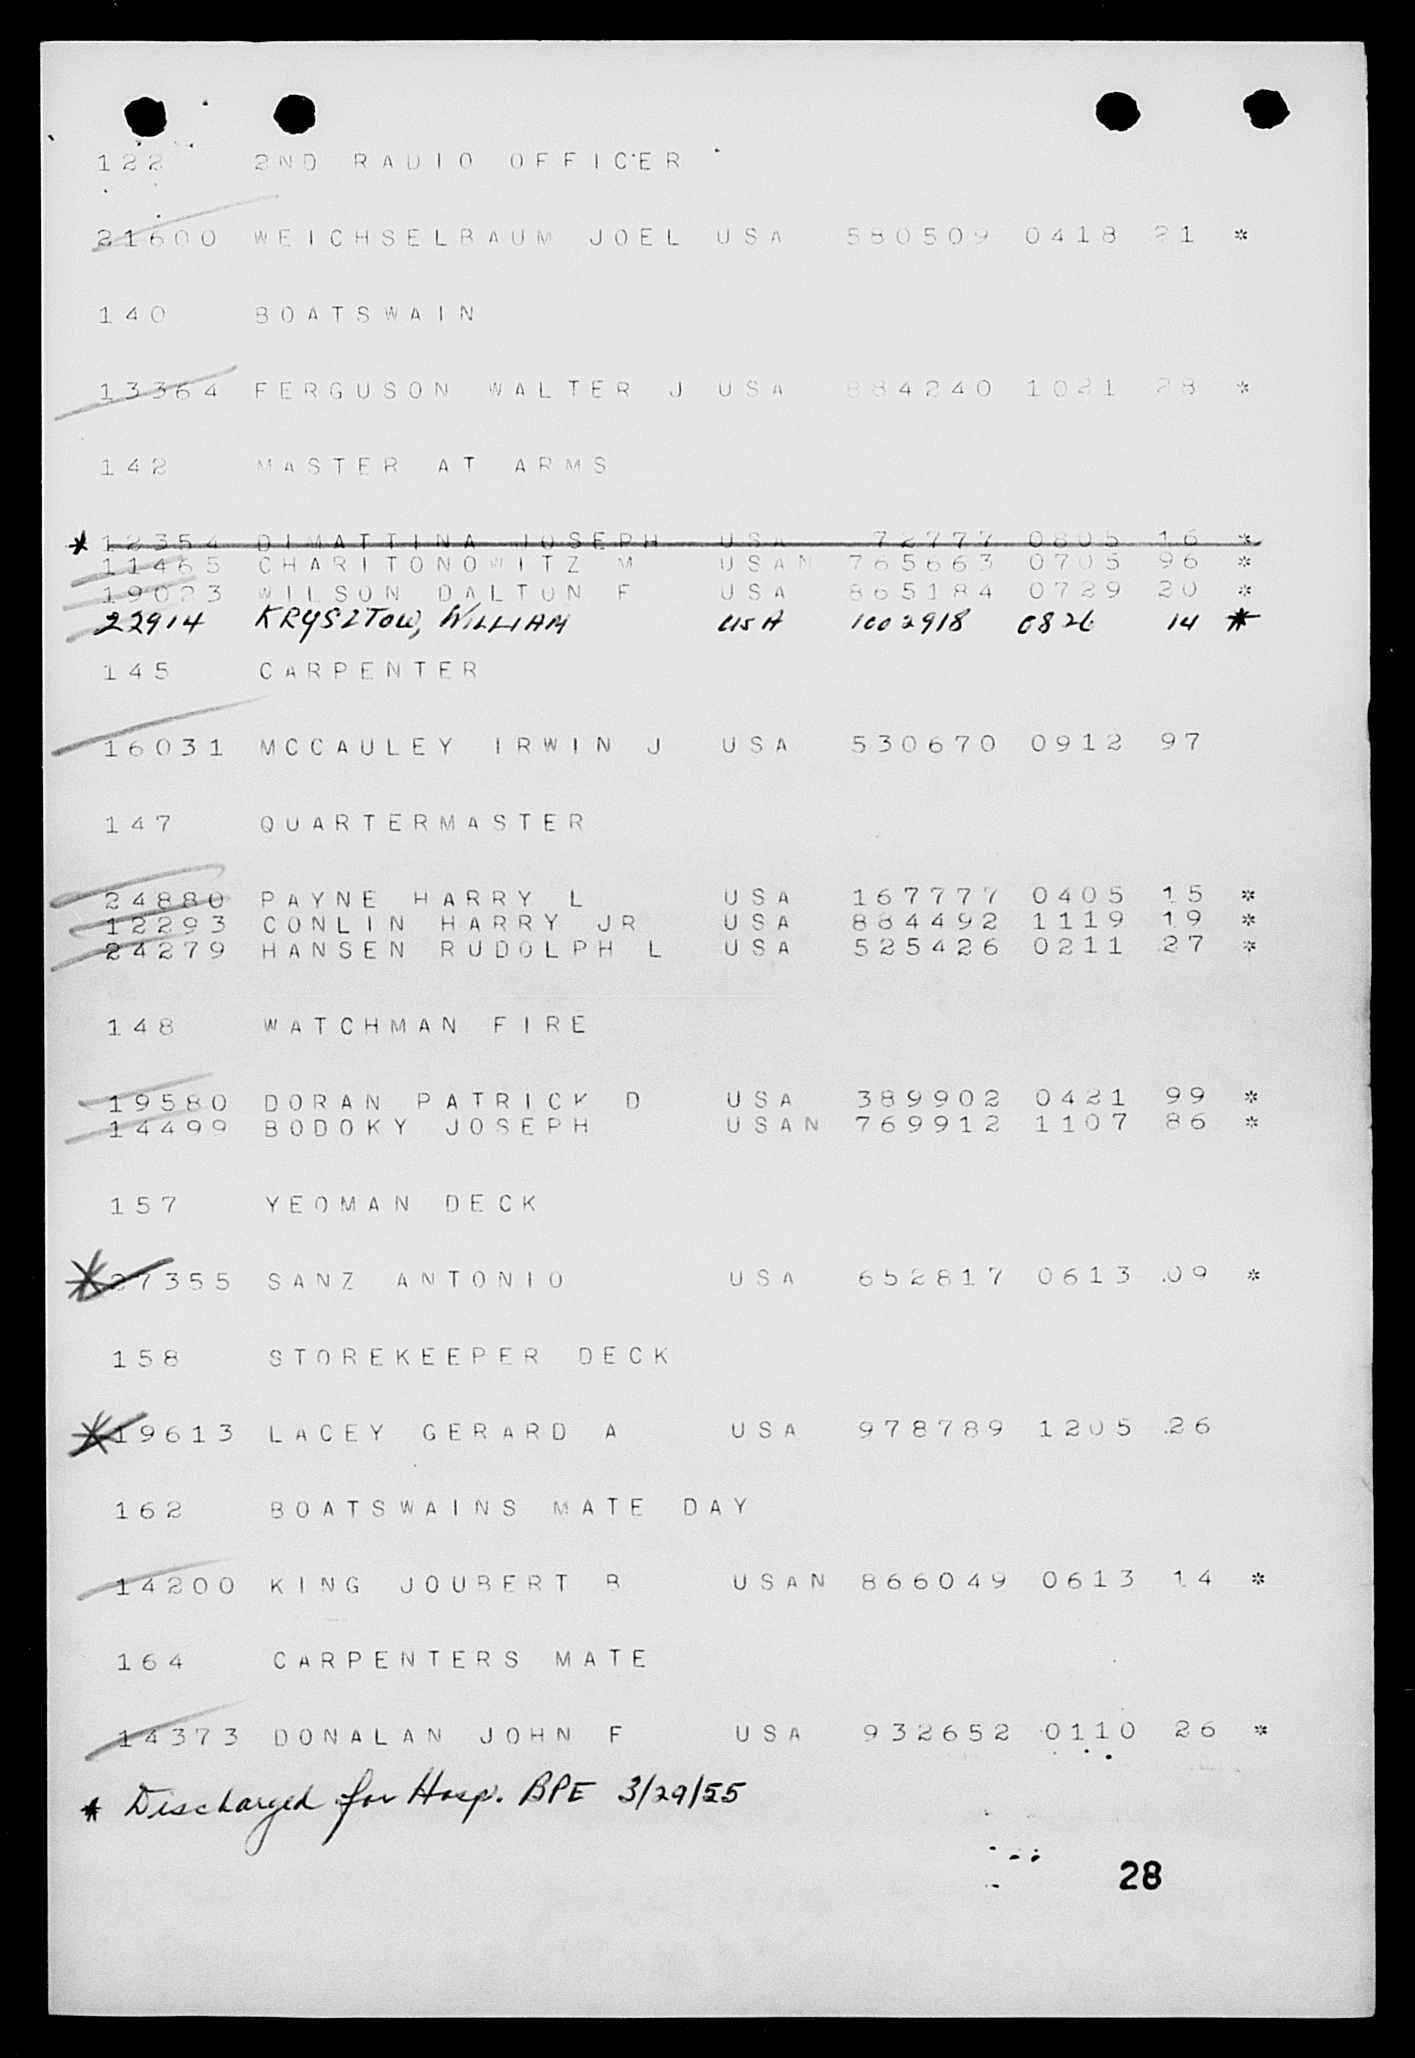 122 2ND RADIO OFFICER
21600 WEICHSELBAUM JOEL USA 580509 0418 21 *
140 BOATSWAIN
13364 FERGUSON WALTER J USA 884240 1021 28 *
142 MASTER AT ARMS
* 12354 DIMATTINA JOSEPH USA 72777 0805 16 *
11465 CHARITONOWITZ M USAN 765663 0705 96 *
19023 WILSON DALTON F USA 865184 0729 20 *
22914 KRYSZTOW, WILLIAM USA 1002918 0826 14 *
145 CARPENTER
16031 MCCAULEY IRWIN J USA 530670 0912 97
147 QUARTERMASTER
24880 PAYNE HARRY L USA 167777 0405 15 *
12293 CONLIN HARRY JR USA 884492 1119 19 *
24279 HANSEN RUDOLPH L USA 525426 0211 27 *
148 WATCHMAN FIRE
19580 DORAN PATRICK D USA 389902 0421 99 *
14499 BODOKY JOSEPH USAN 769912 1107 86 *
157 YEOMAN DECK
* 27355 SANZ ANTONIO USA 652817 0613 09 *
158 STOREKEEPER DECK
* 19613 LACEY GERARD A USA 978789 1205 26
162 BOATSWAINS MATE DAY
14200 KING JOUBERT B USAN 866049 0613 14 *
164 CARPENTERS MATE
14373 DONALAN JOHN F USA 932652 0110 26 *
* Discharged for Hosp. BPE 3/29/55
28